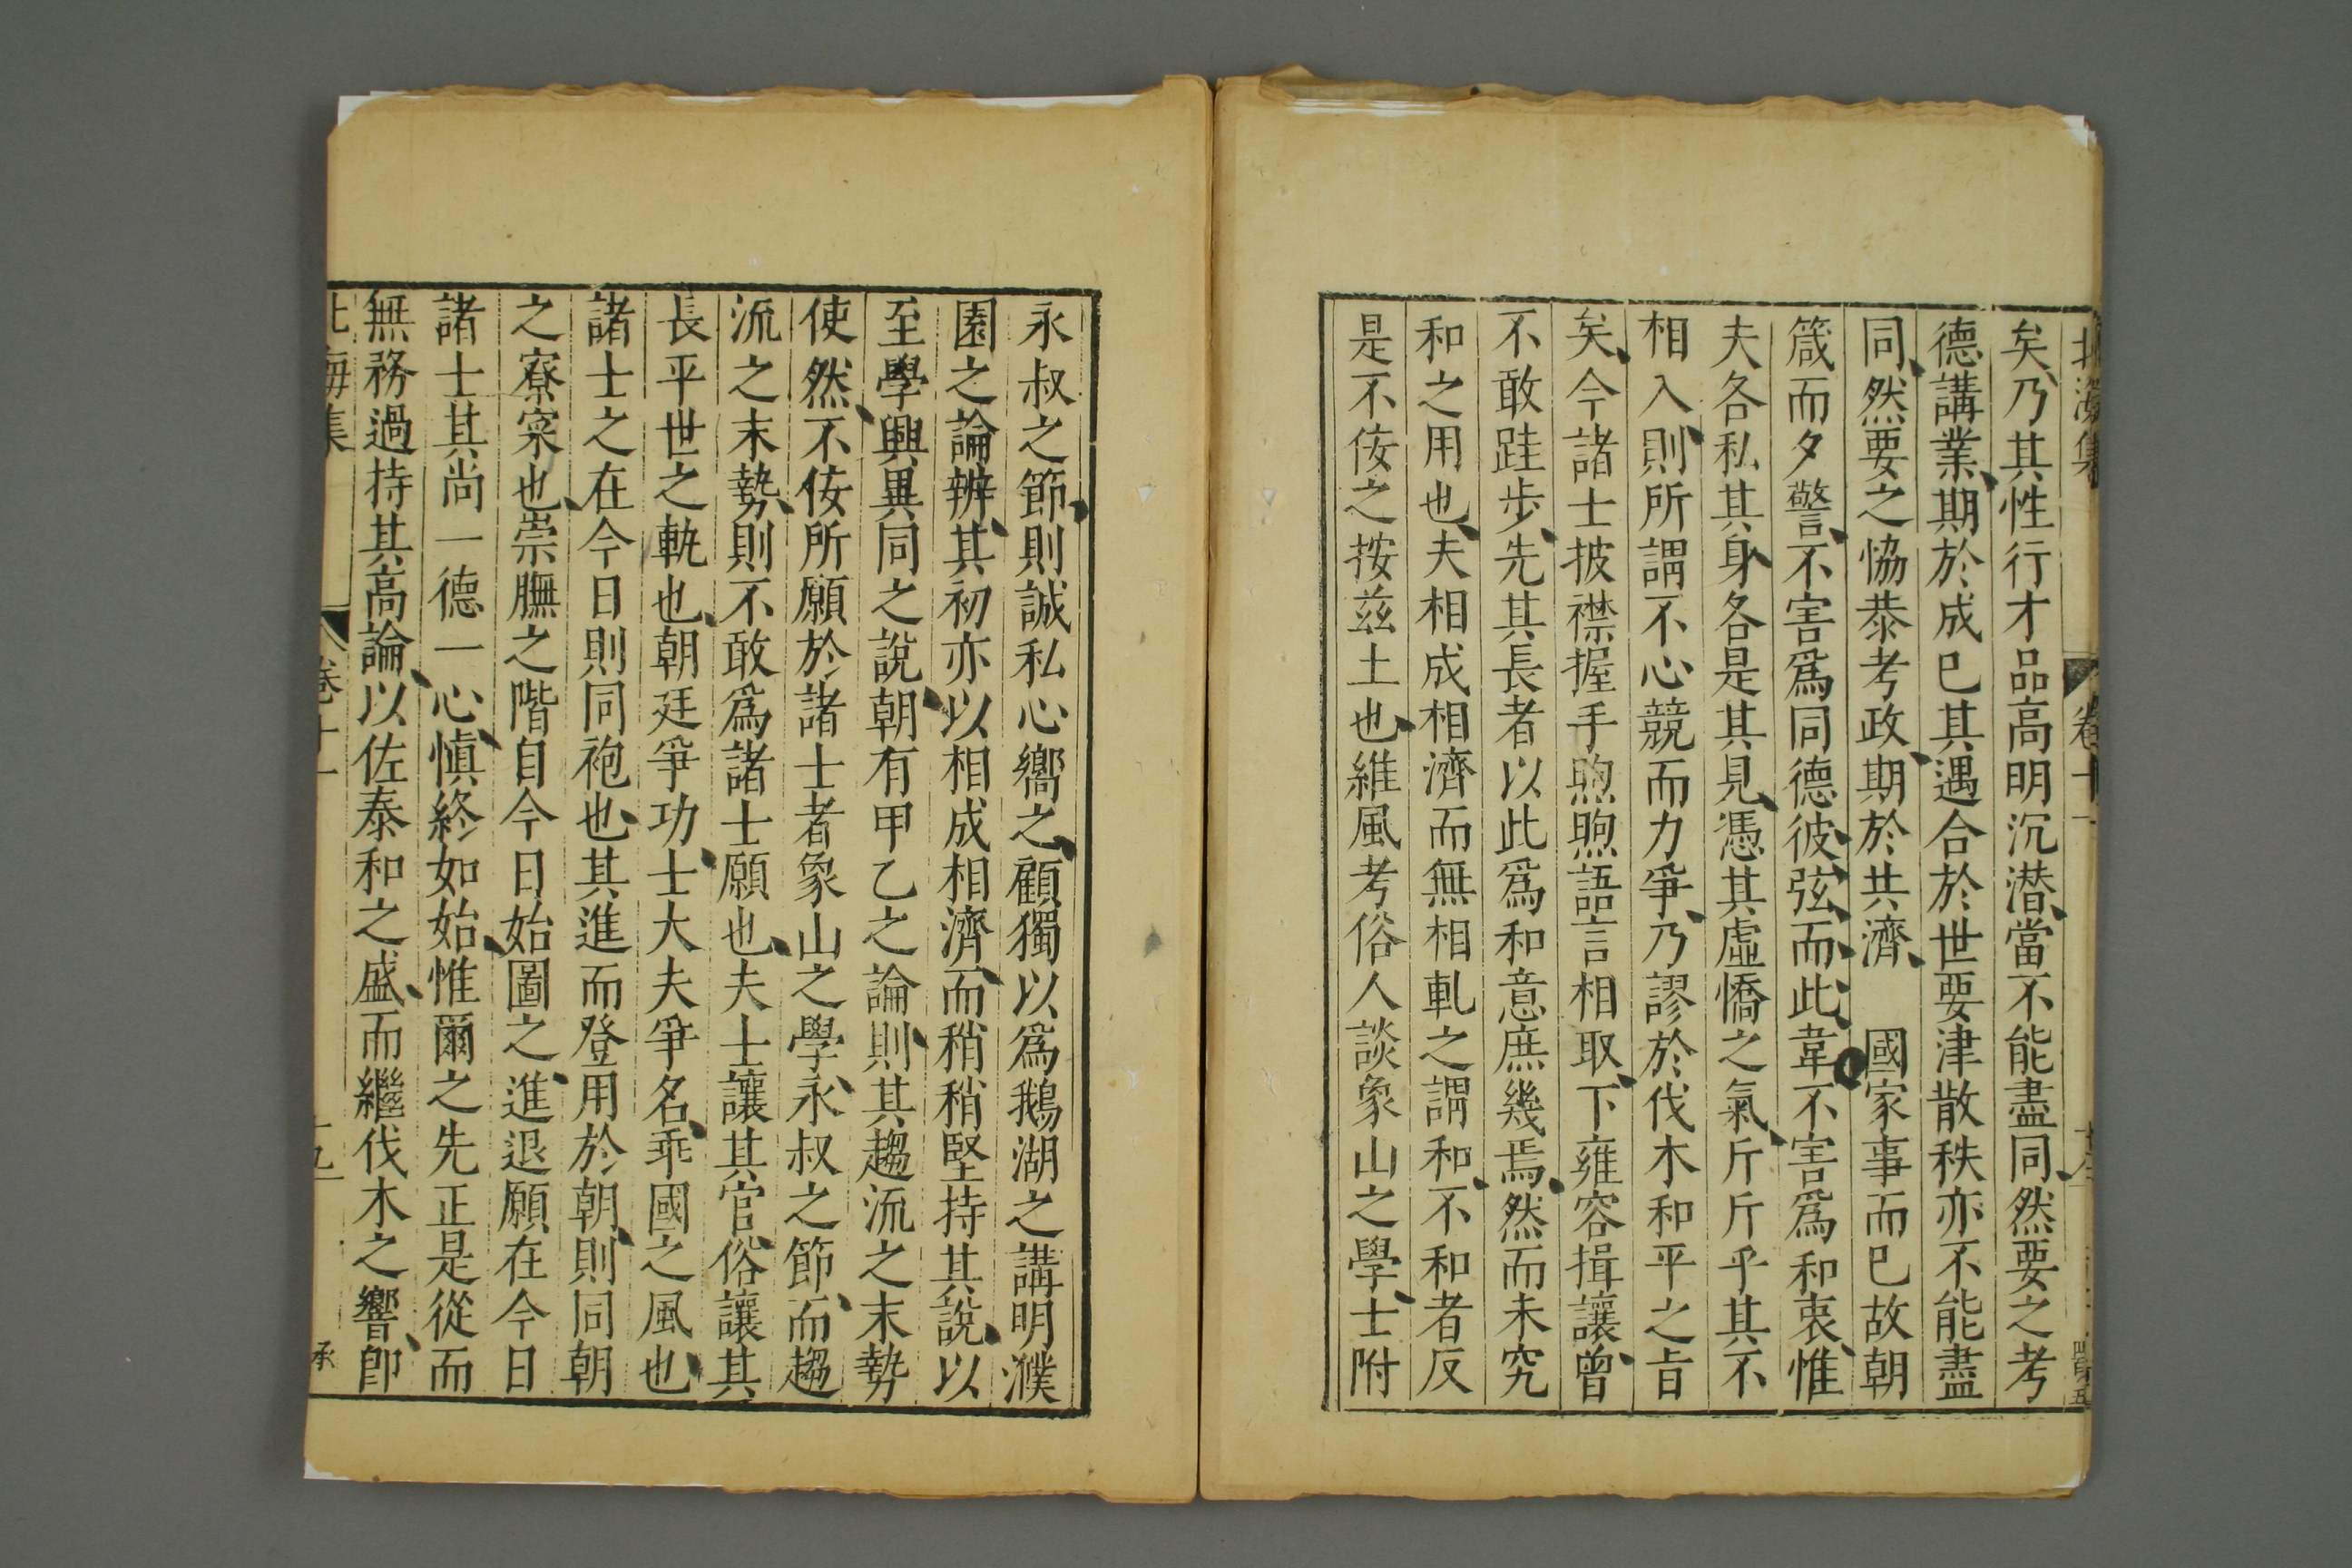 北海集
卷十一
矣乃其性行才品高明沉潜當不能盡同然要之考
德講業期於成巳其遇合於世要津散秩亦不能盡
同然要之恊恭考政期於共濟　國家事而巳故朝
箴而夕警不害爲同德彼弦而此韋不害爲和衷惟
夫各私其身各是其見憑其虛憍之氣斤斤乎其不
相入則所謂不心競而力爭乃謬於伐木和平之旨
矣今諸士披襟握手煦煦語言相取下雍容揖讓曾
不敢跬步先其長者以此爲和意庶幾焉然而未究
和之用也夫相成相濟而無相軋之謂和不和者反
是不佞之按茲土也維風考俗人談象山之學士附
永叔之節則誠私心嚮之顧獨以爲鵝湖之講明濮
園之論辨其初亦以相成相濟而稍稍堅持其說以
至學興異同之說朝有甲乙之論則其趨流之末勢
使然不佞所願於諸士者象山之學永叔之節而趨
流之末勢則不敢爲諸士願也夫士讓其官俗讓其
長平世之軌也朝廷爭功士大夫爭名乖國之風也
諸士之在今日則同袍也其進而登用於朝則同朝
之寮寀也崇膴之階自今日始圖之進退願在今日
諸士其尚一德一心愼終如始惟爾之先正是從而
無務過持其高論以佐泰和之盛而繼伐木之響卽
北海集
卷十一
十九
承